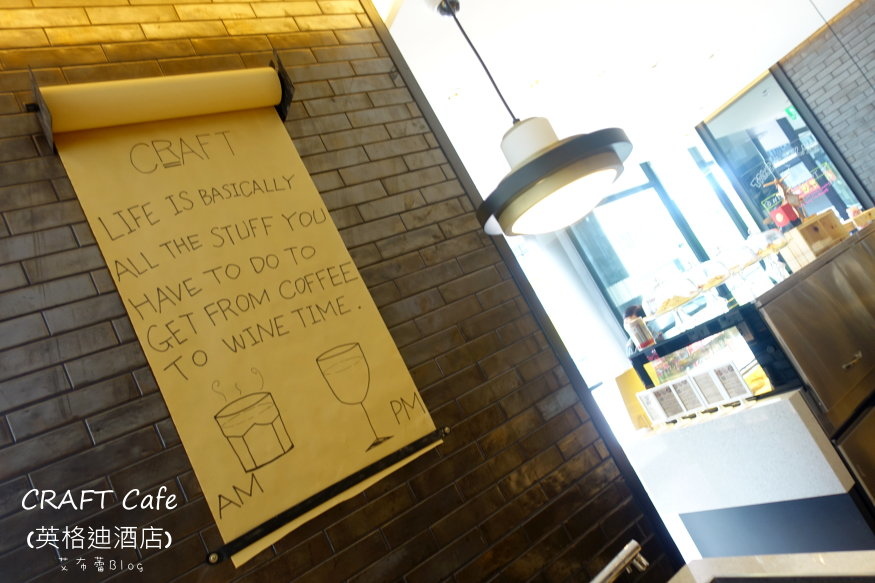 CRAFT
LIFE IS BASICALLY
ALL THE STUFF YOU
HAVE TO DO TO
GET FROM COFFEE
TO WINE TIME.
AM
PM
CRAFT Cafe
(英格迪酒店)
艾布蕾Blog